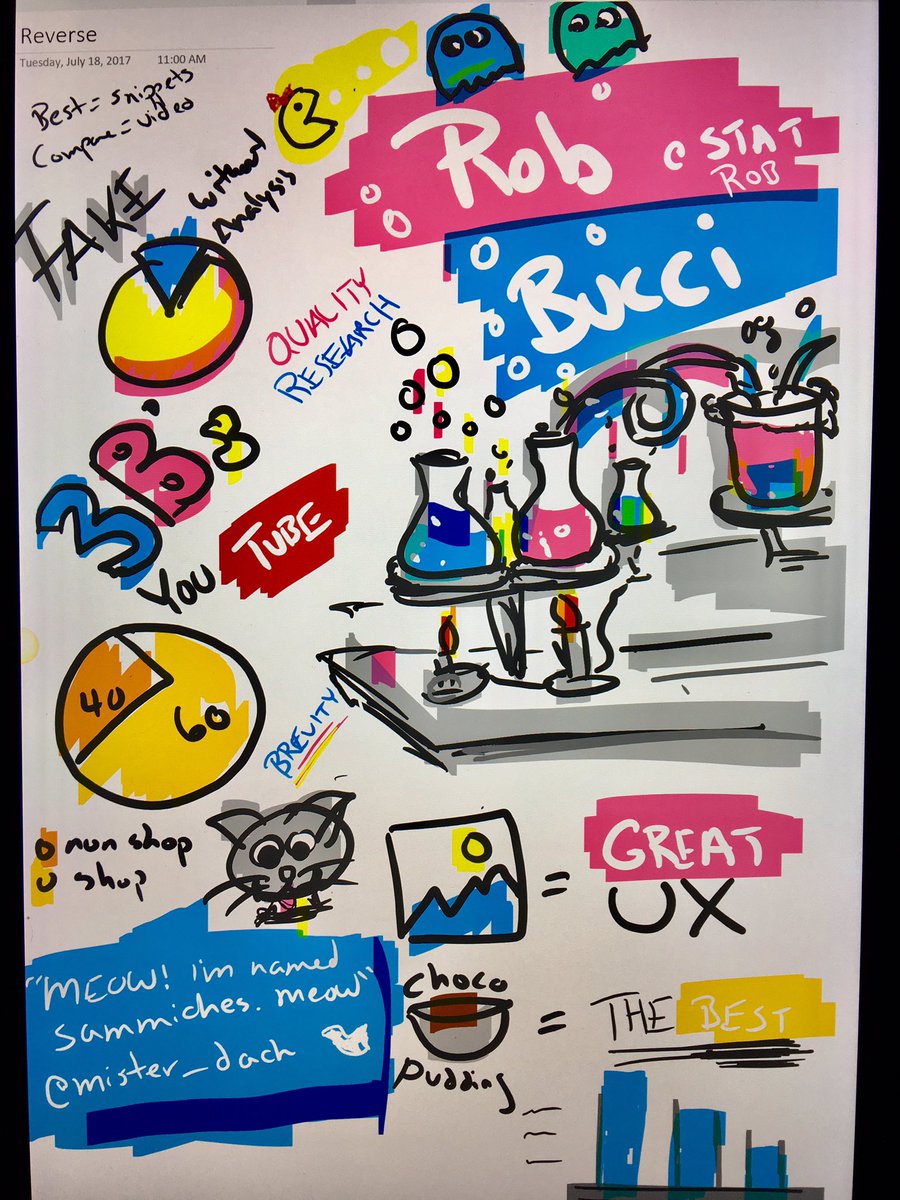 Reverse
Tuesday, July 18, 2017 11:00 AM
Best = snippets
Compare = video
FAKE
without
Analysis
Rob
STAT
ROB
Bucci
QUALITY
RESEARCH
3B's
YOU TUBE
40
60
BREVITY
non shop
shop
= GREAT
UX
"MEOW! i'm named
sammiches. meow"
@mister_dach
CHOCO
PUDDING
= THE BEST